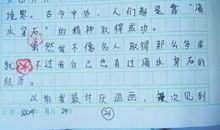 境界。古今中外，人们都是靠“海
水穿石”的精神取得成功。
虽然我不像名人取得那么多成
就，不过我自己也有过海水穿石的
经历。
以前我最讨厌画画，每次见到
26